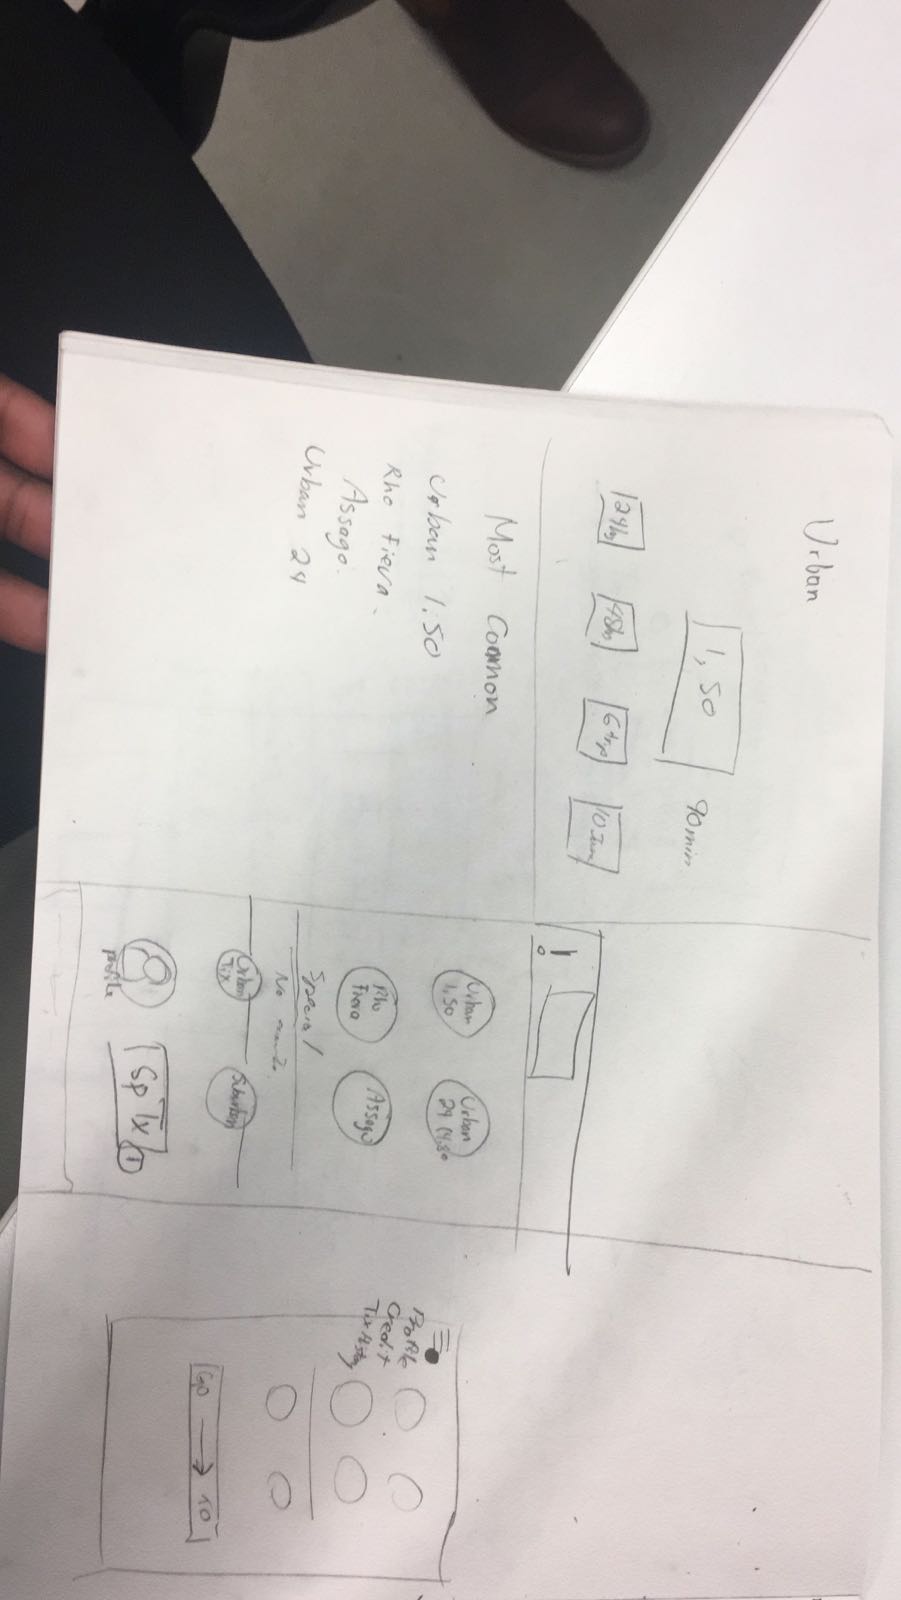 Urban
1,50
90min
24hr
48hr
10
Most Common
Urban 1.50
Rho Fiera.
Assago.
Urban 24
Urban
1.50
Urban
24
Rho
Fiera
Assago
Special
No
Urban
Tix
Suburban
profile
Profile
Credit
Go → TO